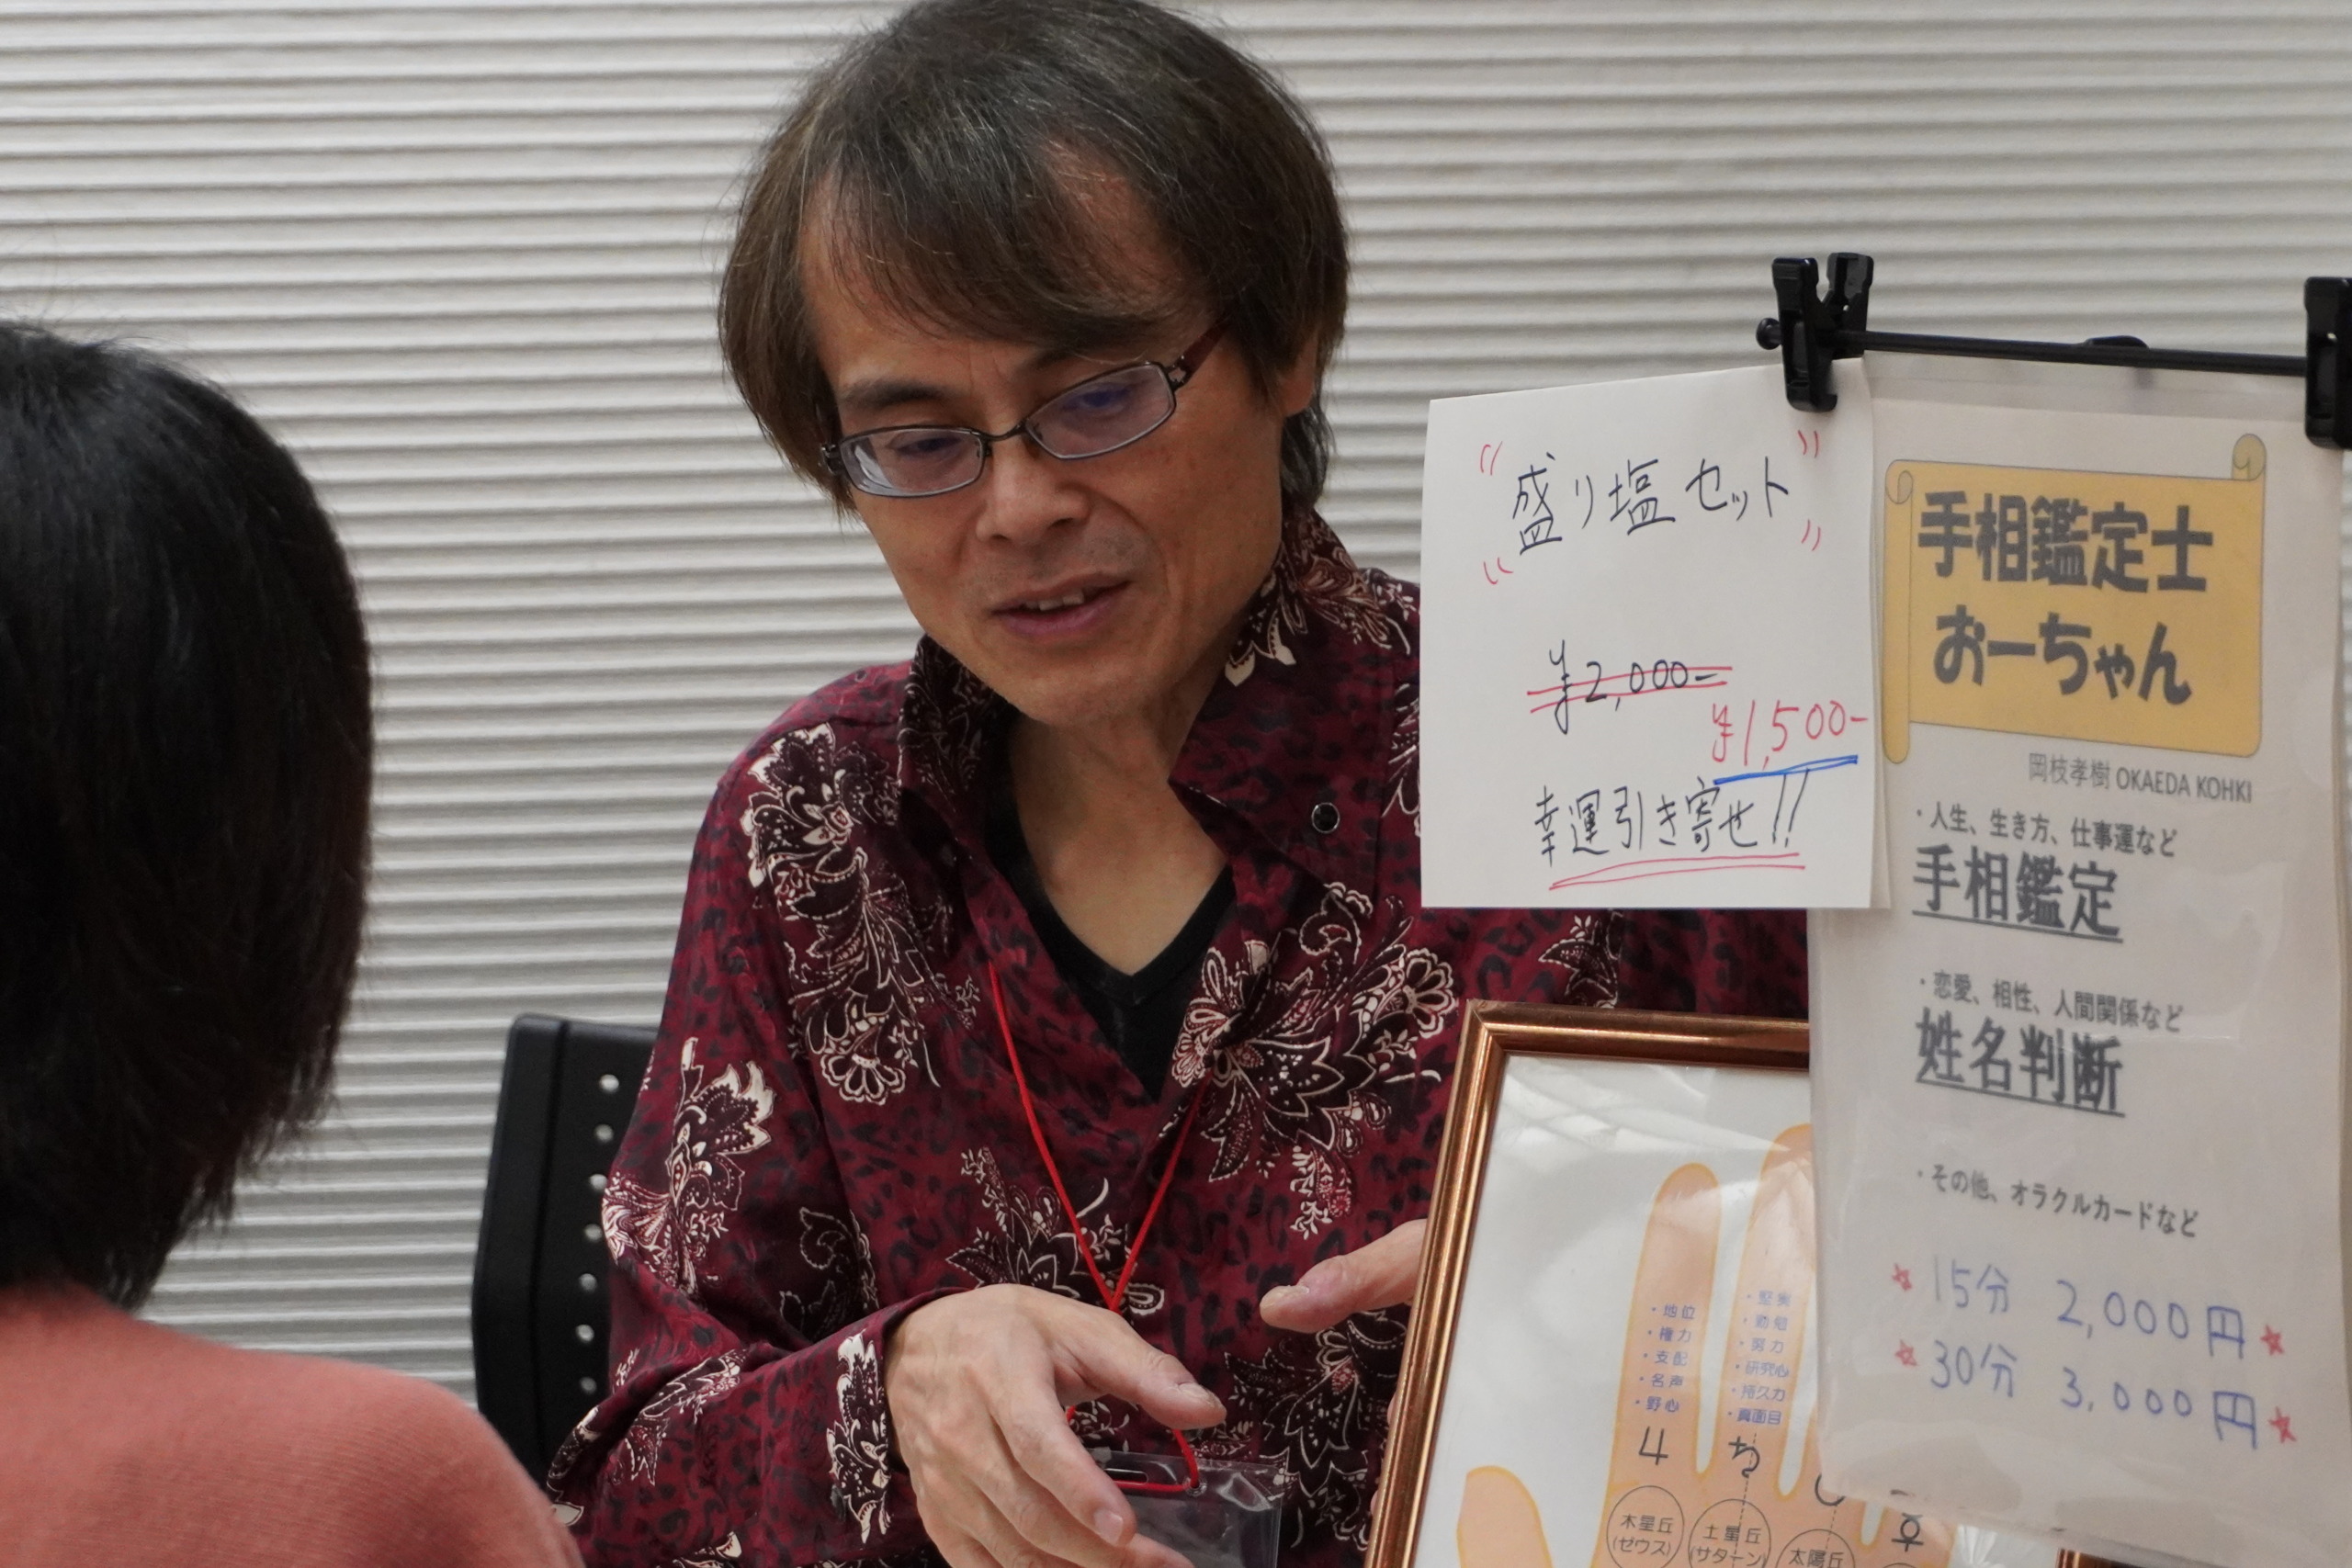 盛り塩セット
¥2,000-
¥1,500-
幸運引き寄せ!!
手相鑑定士
おーちゃん
岡枝孝樹 OKAEDA KOHKI
・人生、生き方、仕事運など
手相鑑定
・恋愛、相性、人間関係など
姓名判断
・その他、オラクルカードなど
15分 2,000円
30分 3,000円
・地位
・権力
・支配
・名声
・野心
・堅実
・勤勉
・努力
・研究心
・持久力
・真面目
木星丘
(ゼウス)
土星丘
(サターン)
太陽丘